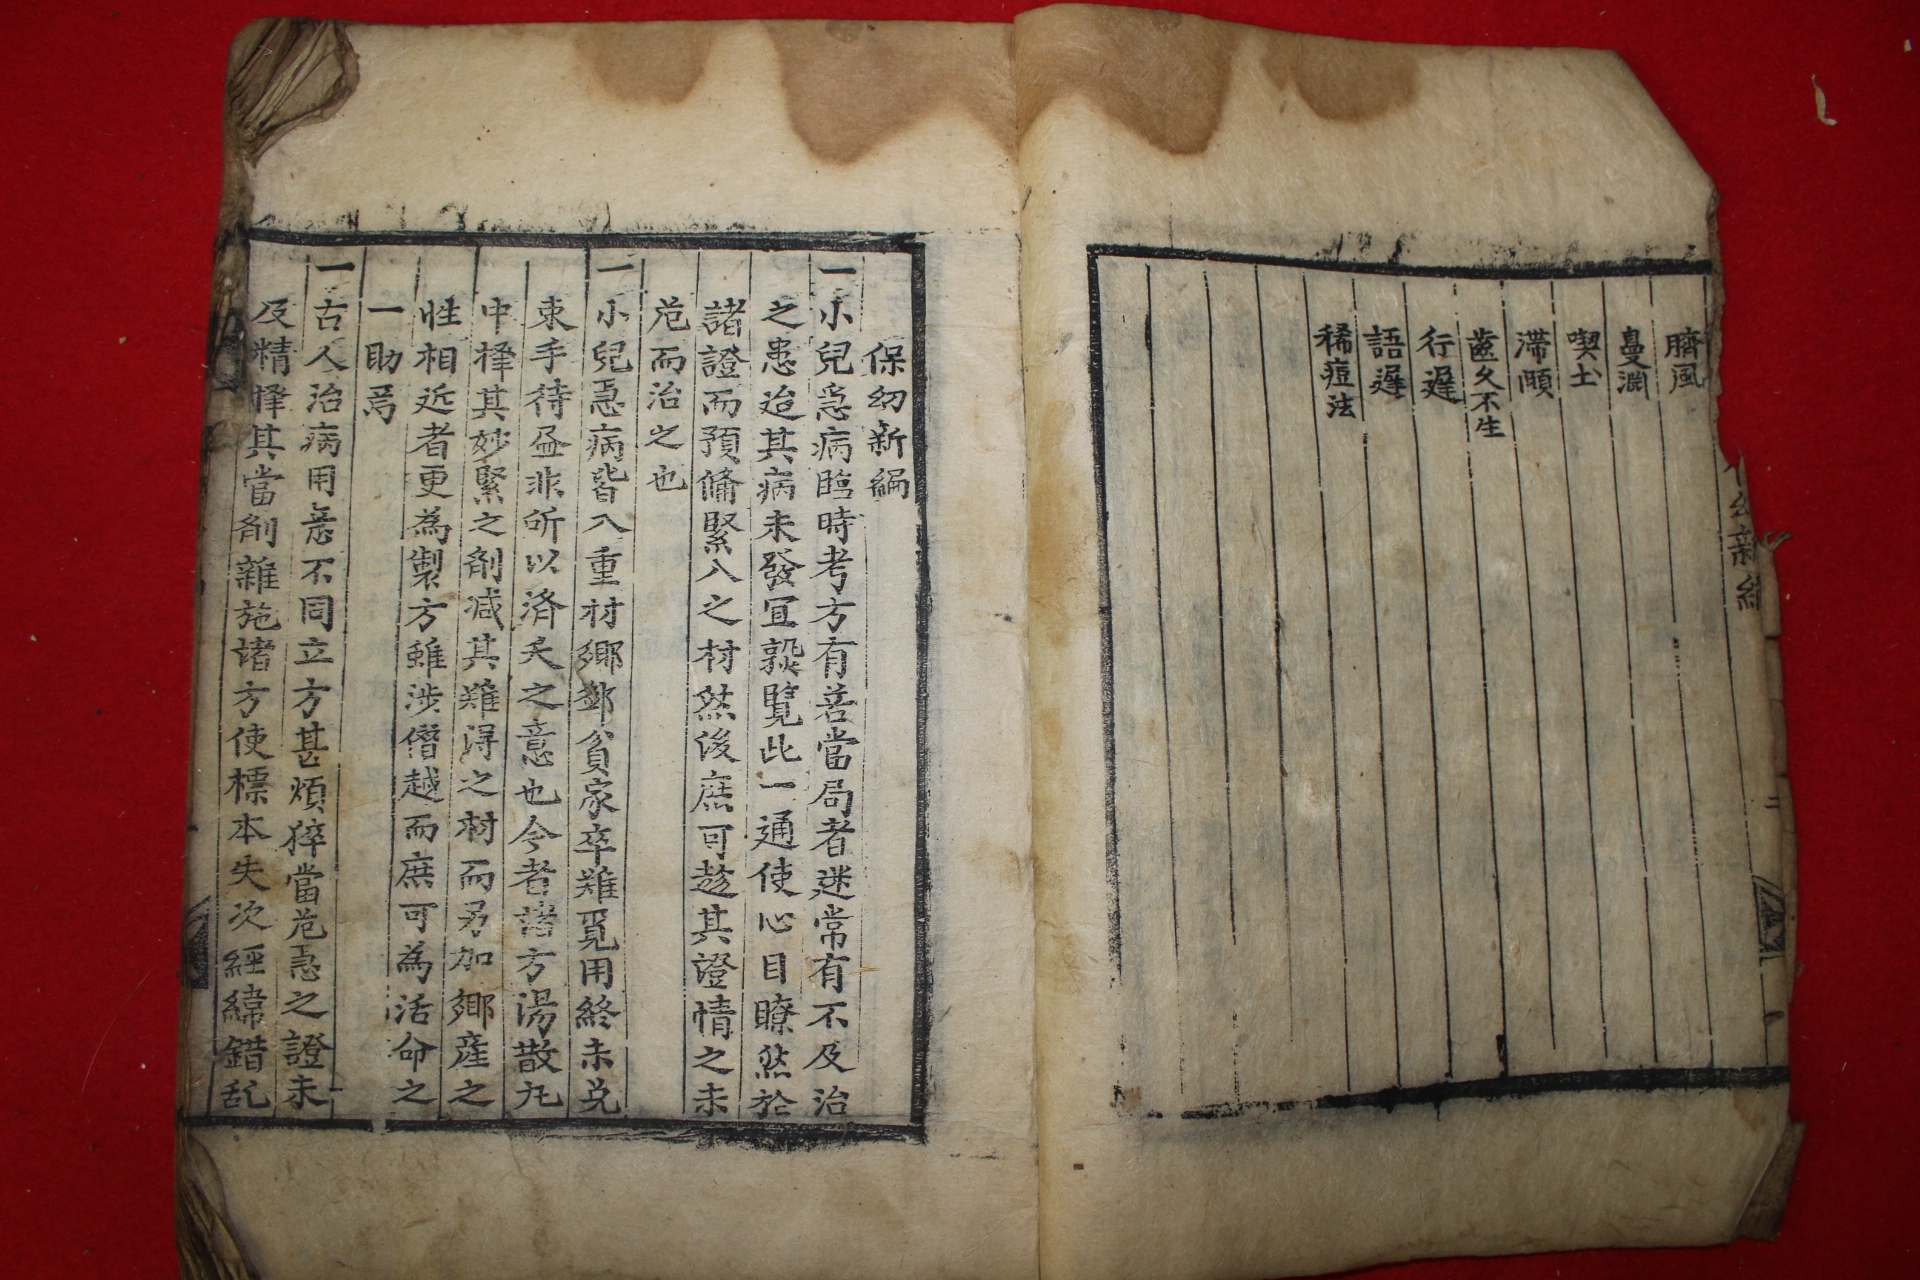 臍風
鼻淵
喫土
滯頤
齒久不生
行遲
語遲
稀痘法
幼新編
保幼新編
一小兒急病臨時考方有若當局者迷常有不及治
之患迨其病未發宜熟覽此一通使心目瞭然於
諸證而預備緊入之材然後庶可趁其證情之未
危而治之也
一小兒急病皆入重材鄕鄙貧家卒難覓用終未免
束手待盡非所以済夭之意也今者諸方湯散丸
中擇其妙緊之剤减其難淂之材而另加鄕産之
性相近者更為製方雖涉僭越而庶可為活命之
一助焉
一古人治病用意不同立方甚煩猝當危急之證未
及精擇其當剤雜施诸方使標本失次經緯錯乱